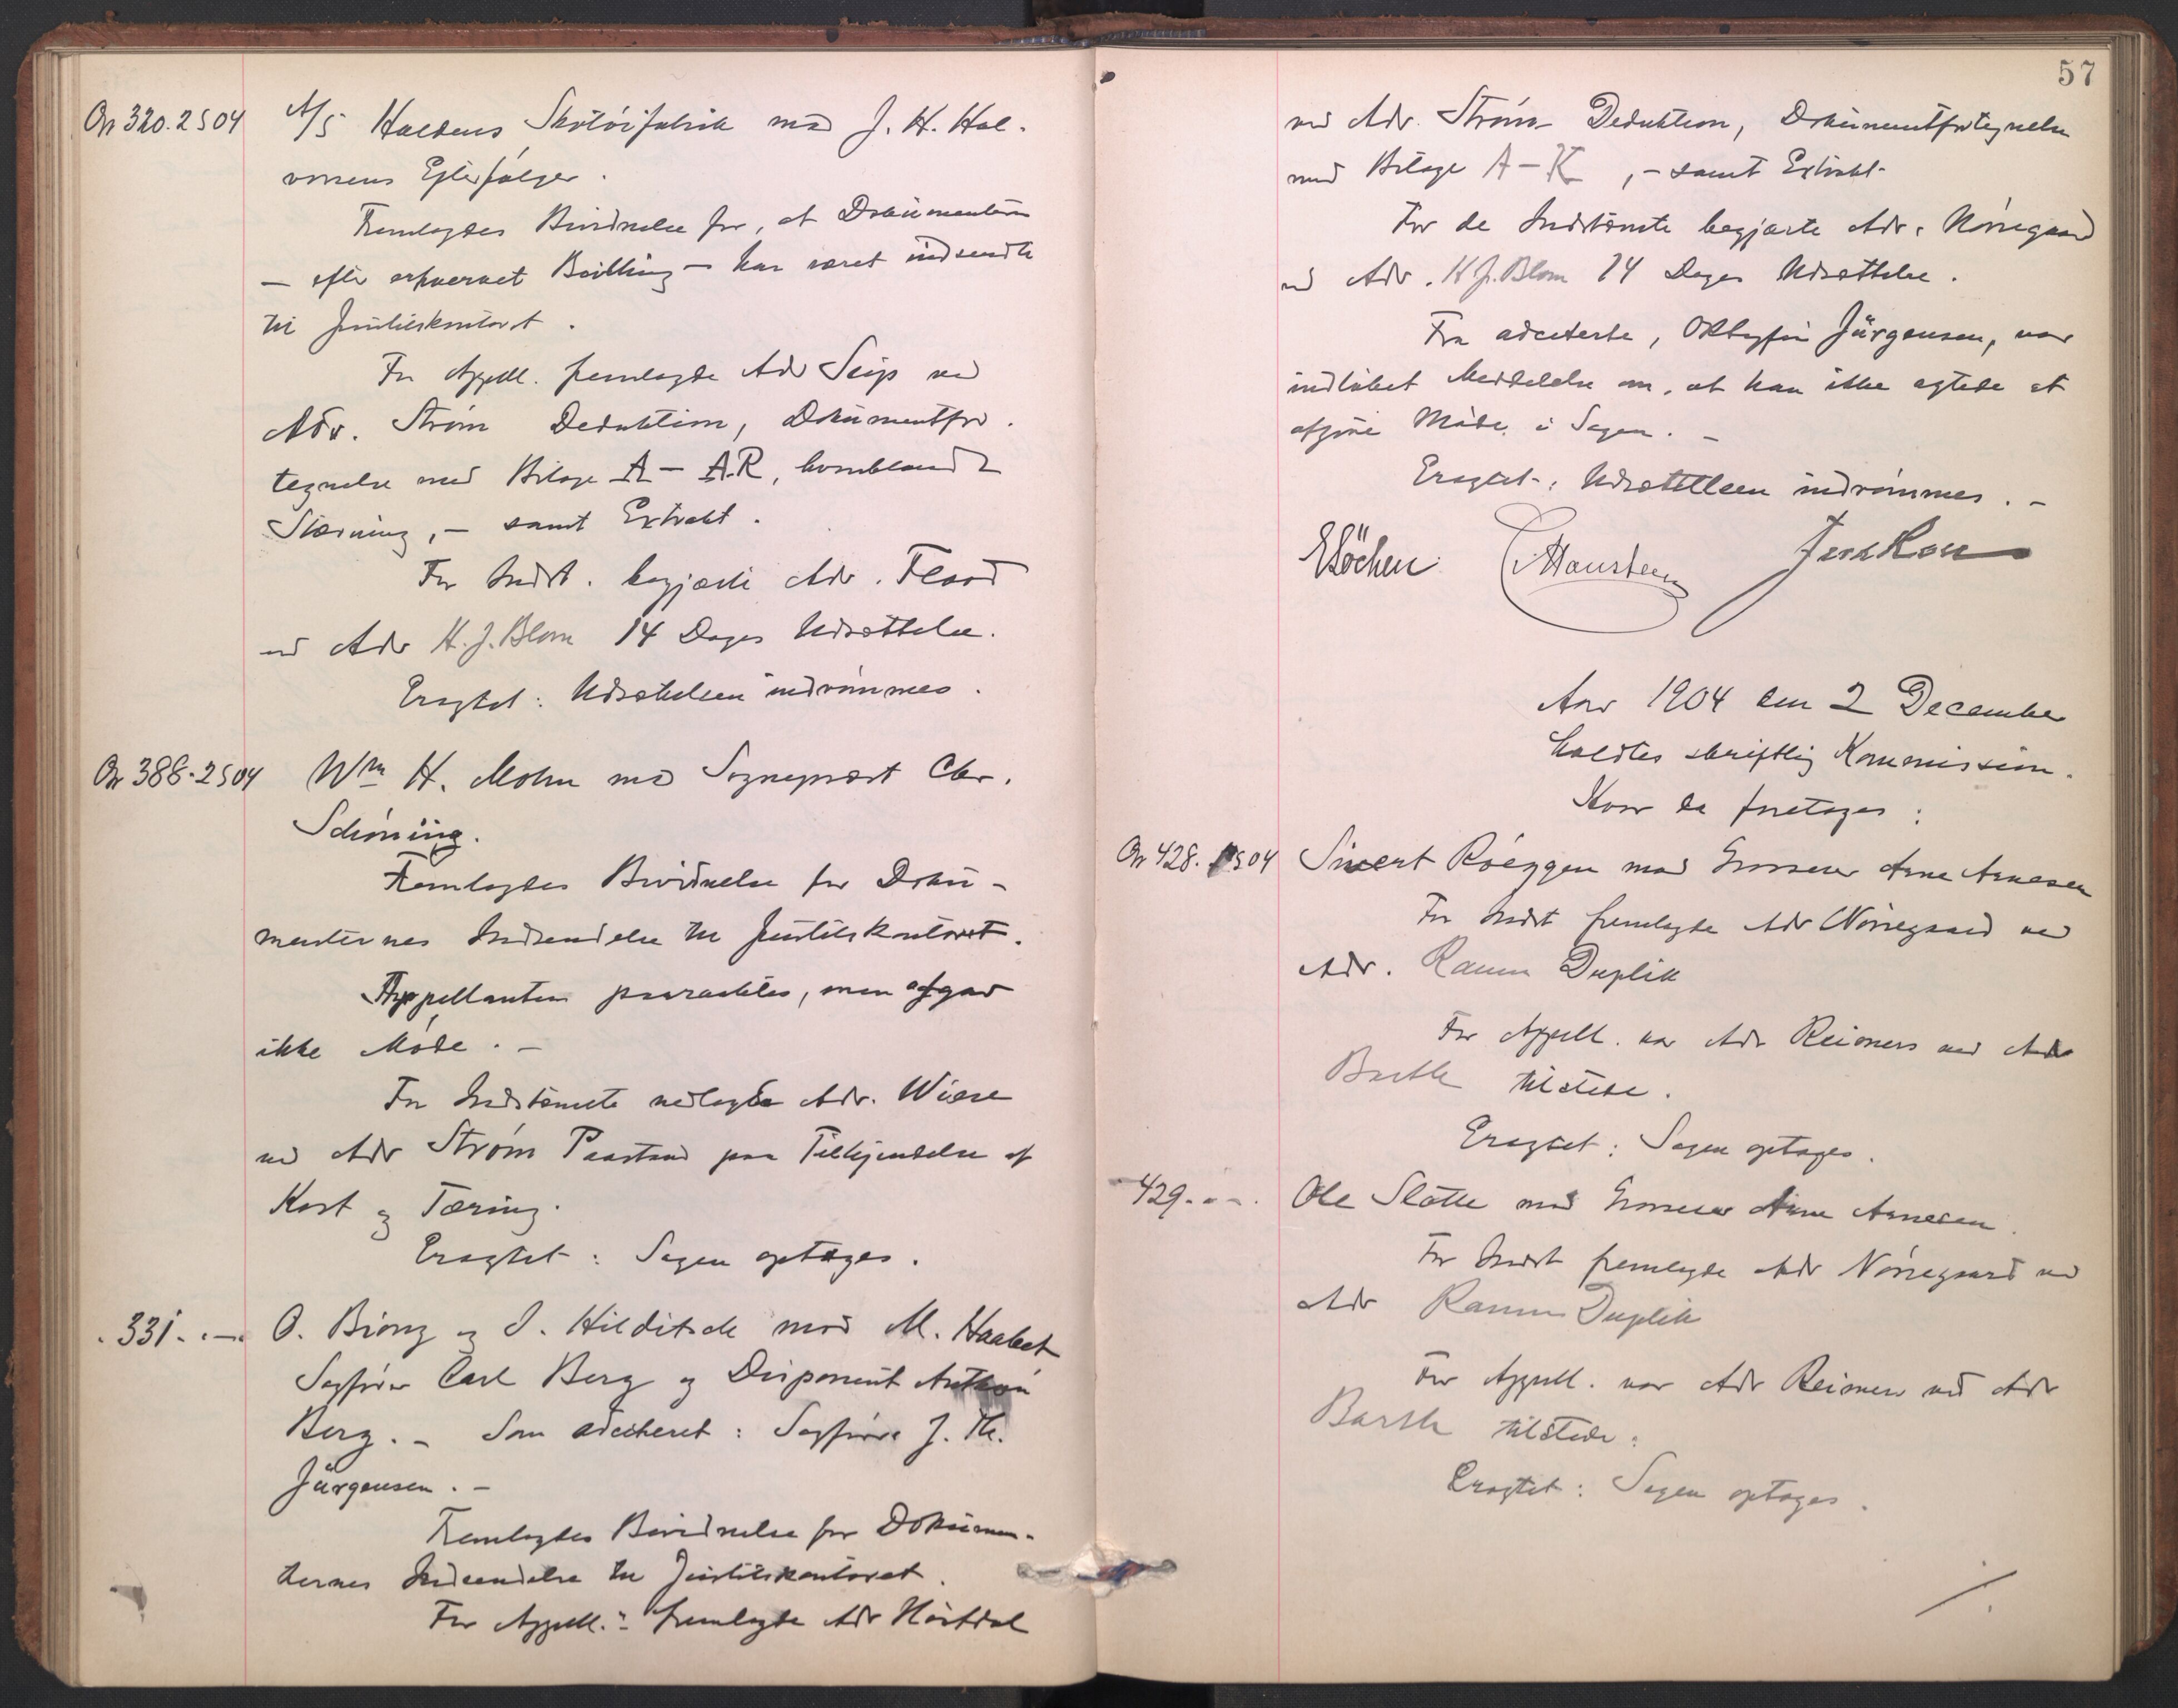 On 320. 2 S 04 A/S Haldens Skotöifabrik mod J. H. Hal-
vorsens Efterfölger.
Fremlagdes Bevidnelse for, at Dokumenterne
— efter erhvervet Bevilling — har været indsendte
til Justitskontoret.
For Appell. fremlagde Adv Seip ved
Adv. Ström Deduktion, Dokumentfor-
tegnelse med Bilage A — A.R, hvoriblandt
Stævning, — samt Extrakt.
For Indst. begjærte Adv. Flood
ved Adv H. J. Blom 14 Dages Udsættelse.
Eragtet: Udsættelsen indrömmes.
On 388. 2 S 04 Wm H. Mohn mod Sogneprest Chr.
Schöning.
Fremlagdes Bevidnelse for Doku-
menternes Indsendelse til Justitskontoret.
Appellanten paaraabtes, men afgav
ikke Möde. —
For Indstævnte nedlagde Adv. Wiese
ved Adv Ström Paastand paa Tilkjendelse af
Kost og Tæring.
Eragtet: Sagen optages.
" 331. " — " O. Biong og J. Hilditsch mod M. Haabet
Sagförer Carl Berg og Disponent Anthon
Berg. — Som adciteret: Sagförer J. Th.
Jürgensen. —
Fremlagdes Bevidnelse for Dokumen-
ternes Indsendelse til Justitskontoret.
For Appell.: fremlagde Adv Hörtdal
57
ved Adv. Ström Deduktion, Dokumentfortegnelse
med Bilage A — K, — samt Extrakt.
For de Indstævnte begjærte Adv. Nörregaard
ved Adv. H J. Blom 14 Dages Udsættelse.
Fra adciterte, Jürgensen, var
indlöbet Meddelelse om, at han ikke agtede at
afgive Möde i Sagen. —
Eragtet: Udsættelsen indrömmes. —
E Löchen Hansteen
Aar 1904 den 2 December
holdtes skriftlig Kommission.
Hvor da foretoges:
On 428. 1 S 04 Sivert Röeggen mod Grosserer Arne Arnesen
For Indst fremlagde Adv Nörregaard ved
Adv. Ramm Duplik
For Appell. var Adv Reimers ved Adv
Barth tilstede.
Eragtet: Sagen optages.
" 429. " — " Ole Slötte mod Grosserer Arne Arnesen.
For Indst fremlagde Adv Nörregaard ved
Adv Ramm Duplik
For Appell. var Adv Reimers ved Adv
Barth tilstede.
Eragtet: Sagen optages.